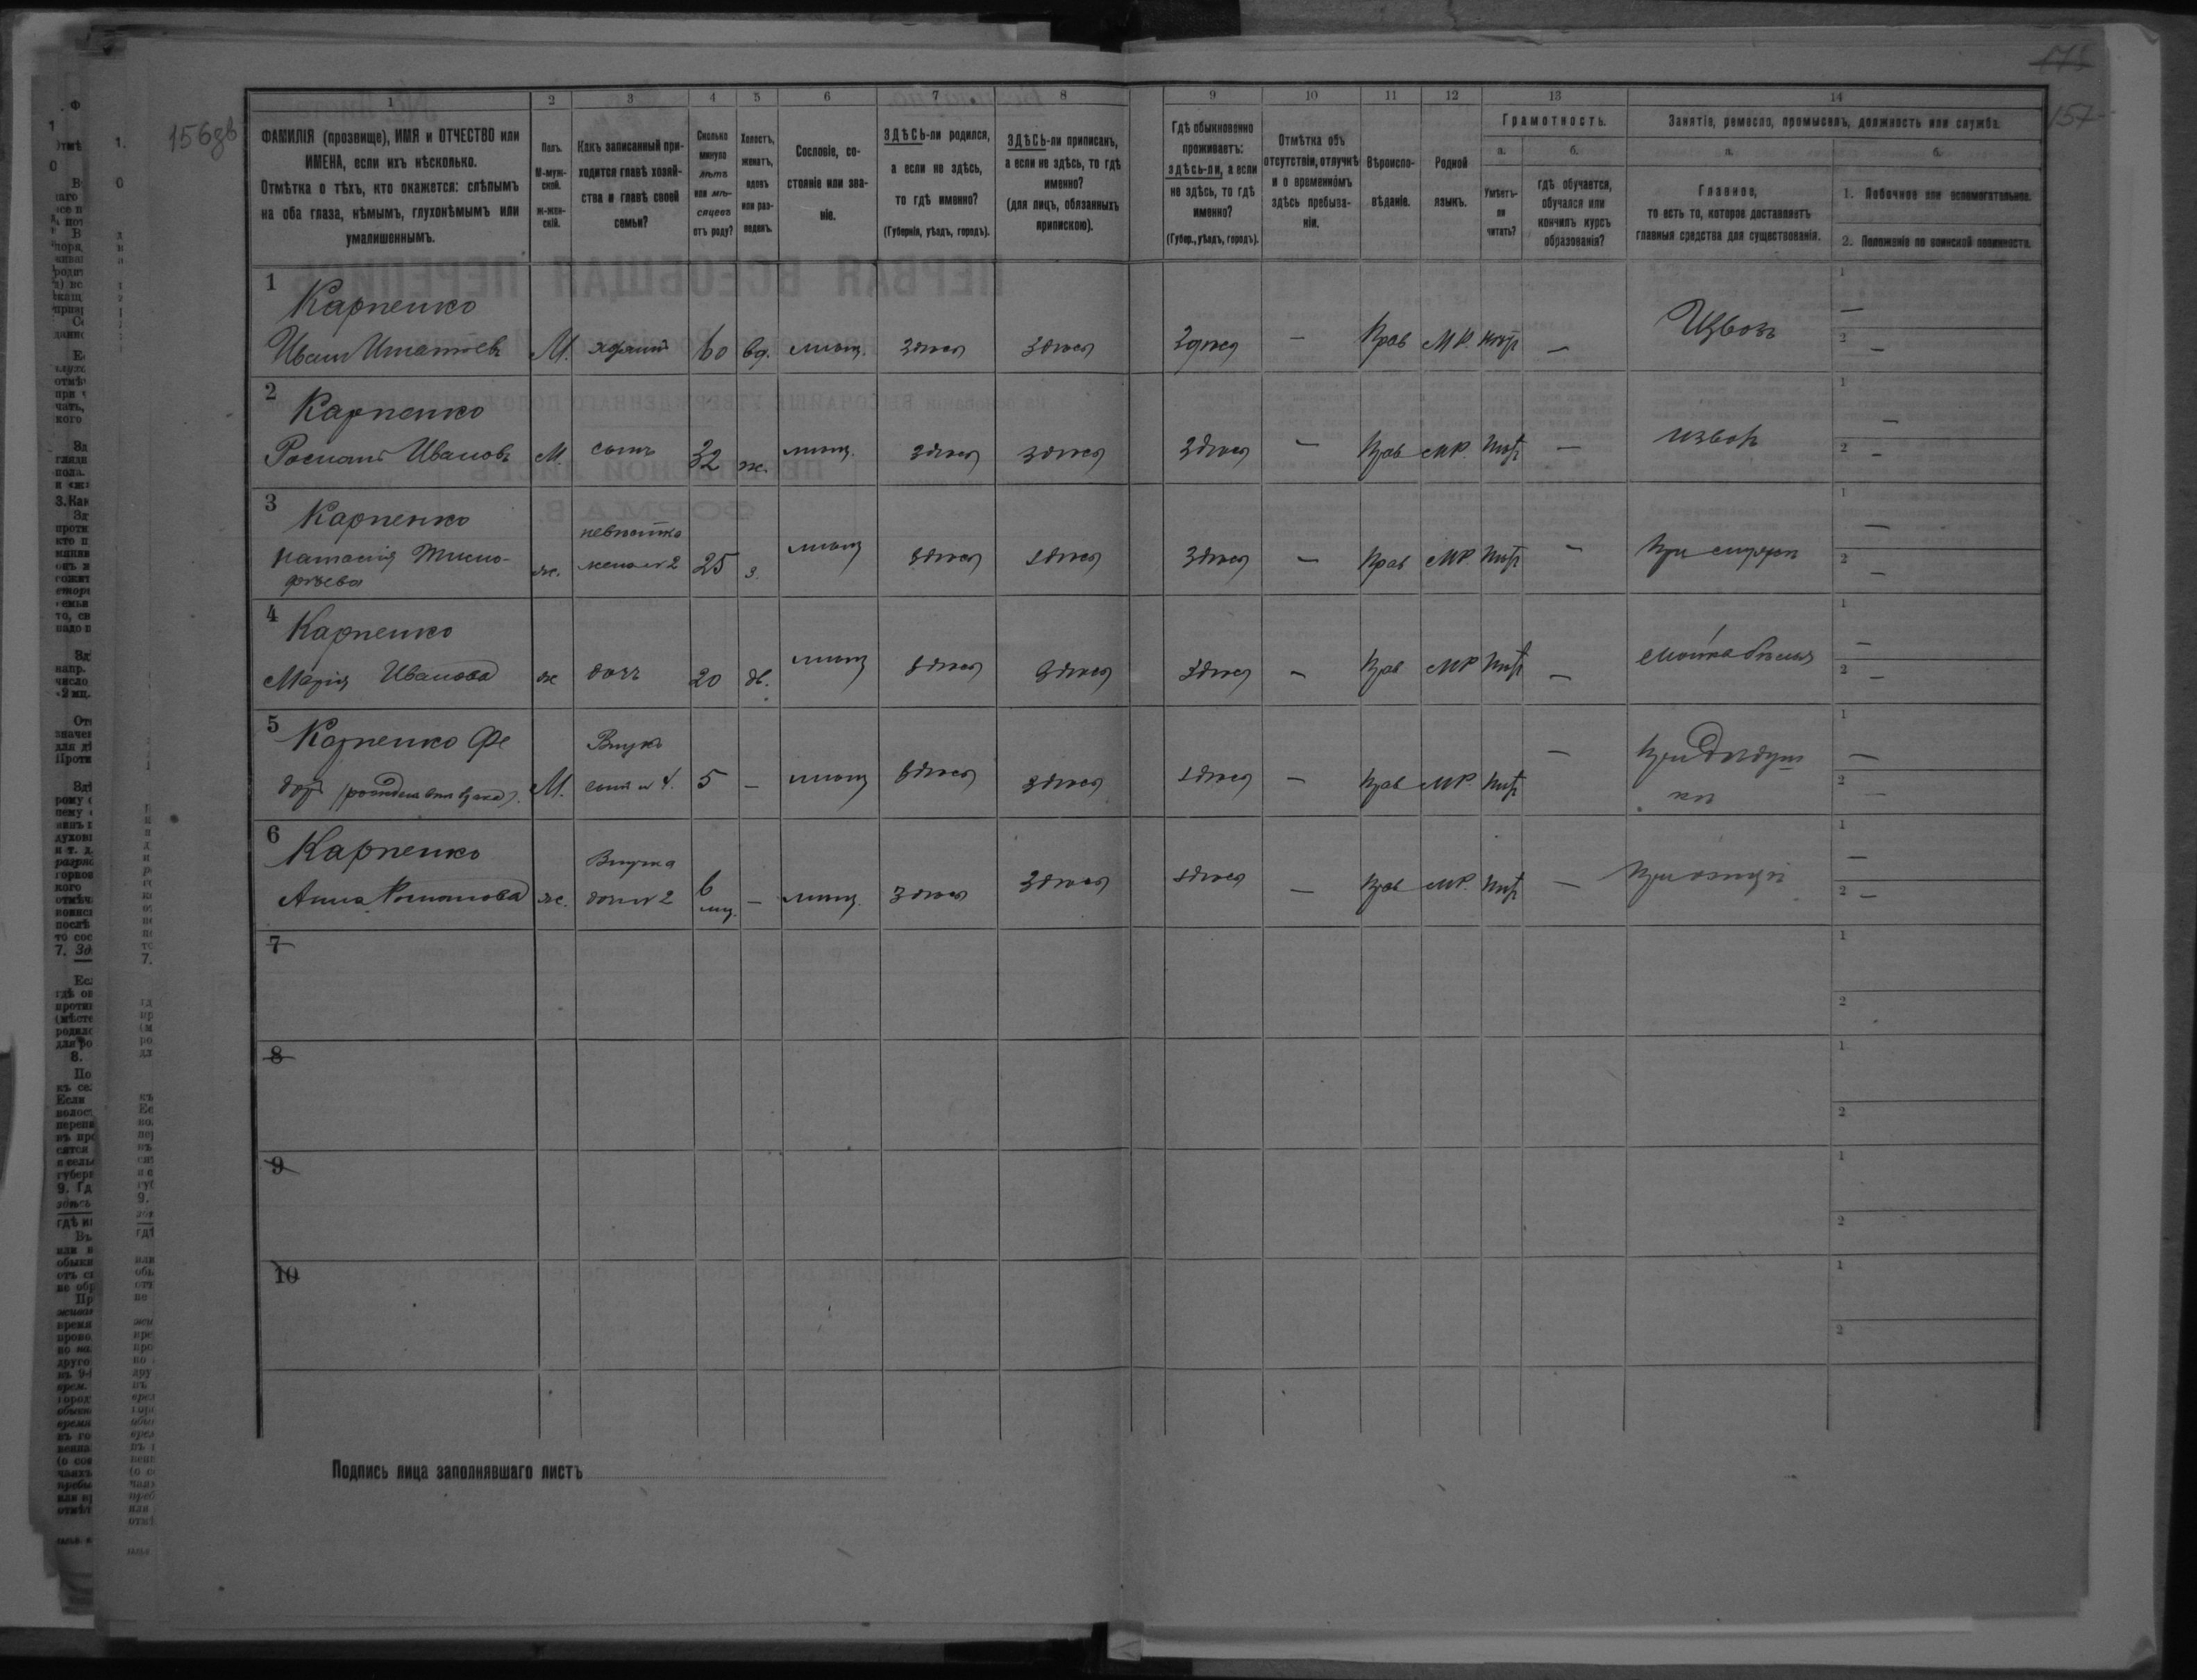 156зв
175
157
1 2 3 4 5 6 7 8 9 10 11 12 13 14
ФАМИЛІЯ (прозвище), ИМЯ и ОТЧЕСТВО или
ИМЕНА, если ихъ нѣсколько.
Отмѣтка о тѣхъ, кто окажется: слѣпымъ
на оба глаза, нѣмымъ, глухонѣмымъ или
умалишеннымъ.
Полъ.
М-муж-
ской.
ж-жен-
скій.
Какъ записанный при-
ходится главѣ хозяй-
ства и главѣ своей
семьи?
Сколько
минуло
лѣтъ
или мѣ-
сяцевъ
отъ роду?
Холостъ,
женатъ,
вдовъ
или раз-
веденъ.
Сословіе, со-
стояніе или зва-
ніе.
ЗДѢСЬ-ли родился,
а если не здѣсь,
то гдѣ именно?
(Губернія, уѣздъ, городъ).
ЗДѢСЬ-ли приписанъ,
а если не здѣсь, то гдѣ
именно?
(для лицъ, обязанныхъ
припискою).
Гдѣ обыкновенно
проживаетъ:
здѣсь-ли, а если
не здѣсь, то гдѣ
именно?
(Губер., уѣздъ, городъ).
Отмѣтка объ
отсутствіи, отлучкѣ
и о временномъ
здѣсь пребыва-
ніи.
Вѣроиспо-
вѣданіе.
Родной
языкъ.
Грамотность.
а.
Умѣетъ-
ли
читать?
б.
гдѣ обучается,
обучался или
кончилъ курсъ
образованія?
Занятіе, ремесло, промыселъ, должность или служба.
а.
Главное,
то есть то, которое доставляетъ
главныя средства для существованія.
б.
1. Побочное или вспомогательное.
2. Положеніе по воинской повинности.
1 Карпенко
Иванъ Игнатьевъ М. хозяинъ 60 вд. мѣщ. здѣсь здѣсь здѣсь — Прав М.Р. нѣтъ — Извозъ
1 —
2 —
2 Карпенко
Романъ Ивановъ М. сынъ 32 ж. мѣщ. здѣсь здѣсь здѣсь — Прав М.Р. нѣтъ — извозъ
1 —
2 —
3 Карпенко невѣстка
Тимо-
фѣева ж. жена №2 25 з. мѣщ здѣсь здѣсь здѣсь — Прав М.Р. нѣтъ — При
1 —
2 —
4 Карпенко
Марія Иванова ж дочь 20 дѣ. мѣщ здѣсь здѣсь здѣсь — Прав М.Р. нѣтъ — бѣлья
1 —
2 —
5 Карпенко Фе Внукъ
доръ М. сынъ №4. 5 — мѣщ здѣсь здѣсь здѣсь — Прав М.Р. нѣтъ — При дѣдуш
кѣ
1 —
2 —
6 Карпенко Внучка
Анна Романова ж. дочь №2 6 мц. — мѣщ. здѣсь здѣсь здѣсь — Прав М.Р. нѣтъ — При отцѣ
1 —
2 —
7
1
2
8
1
2
9
1
2
10
1
2
Подпись лица заполнявшаго листъ